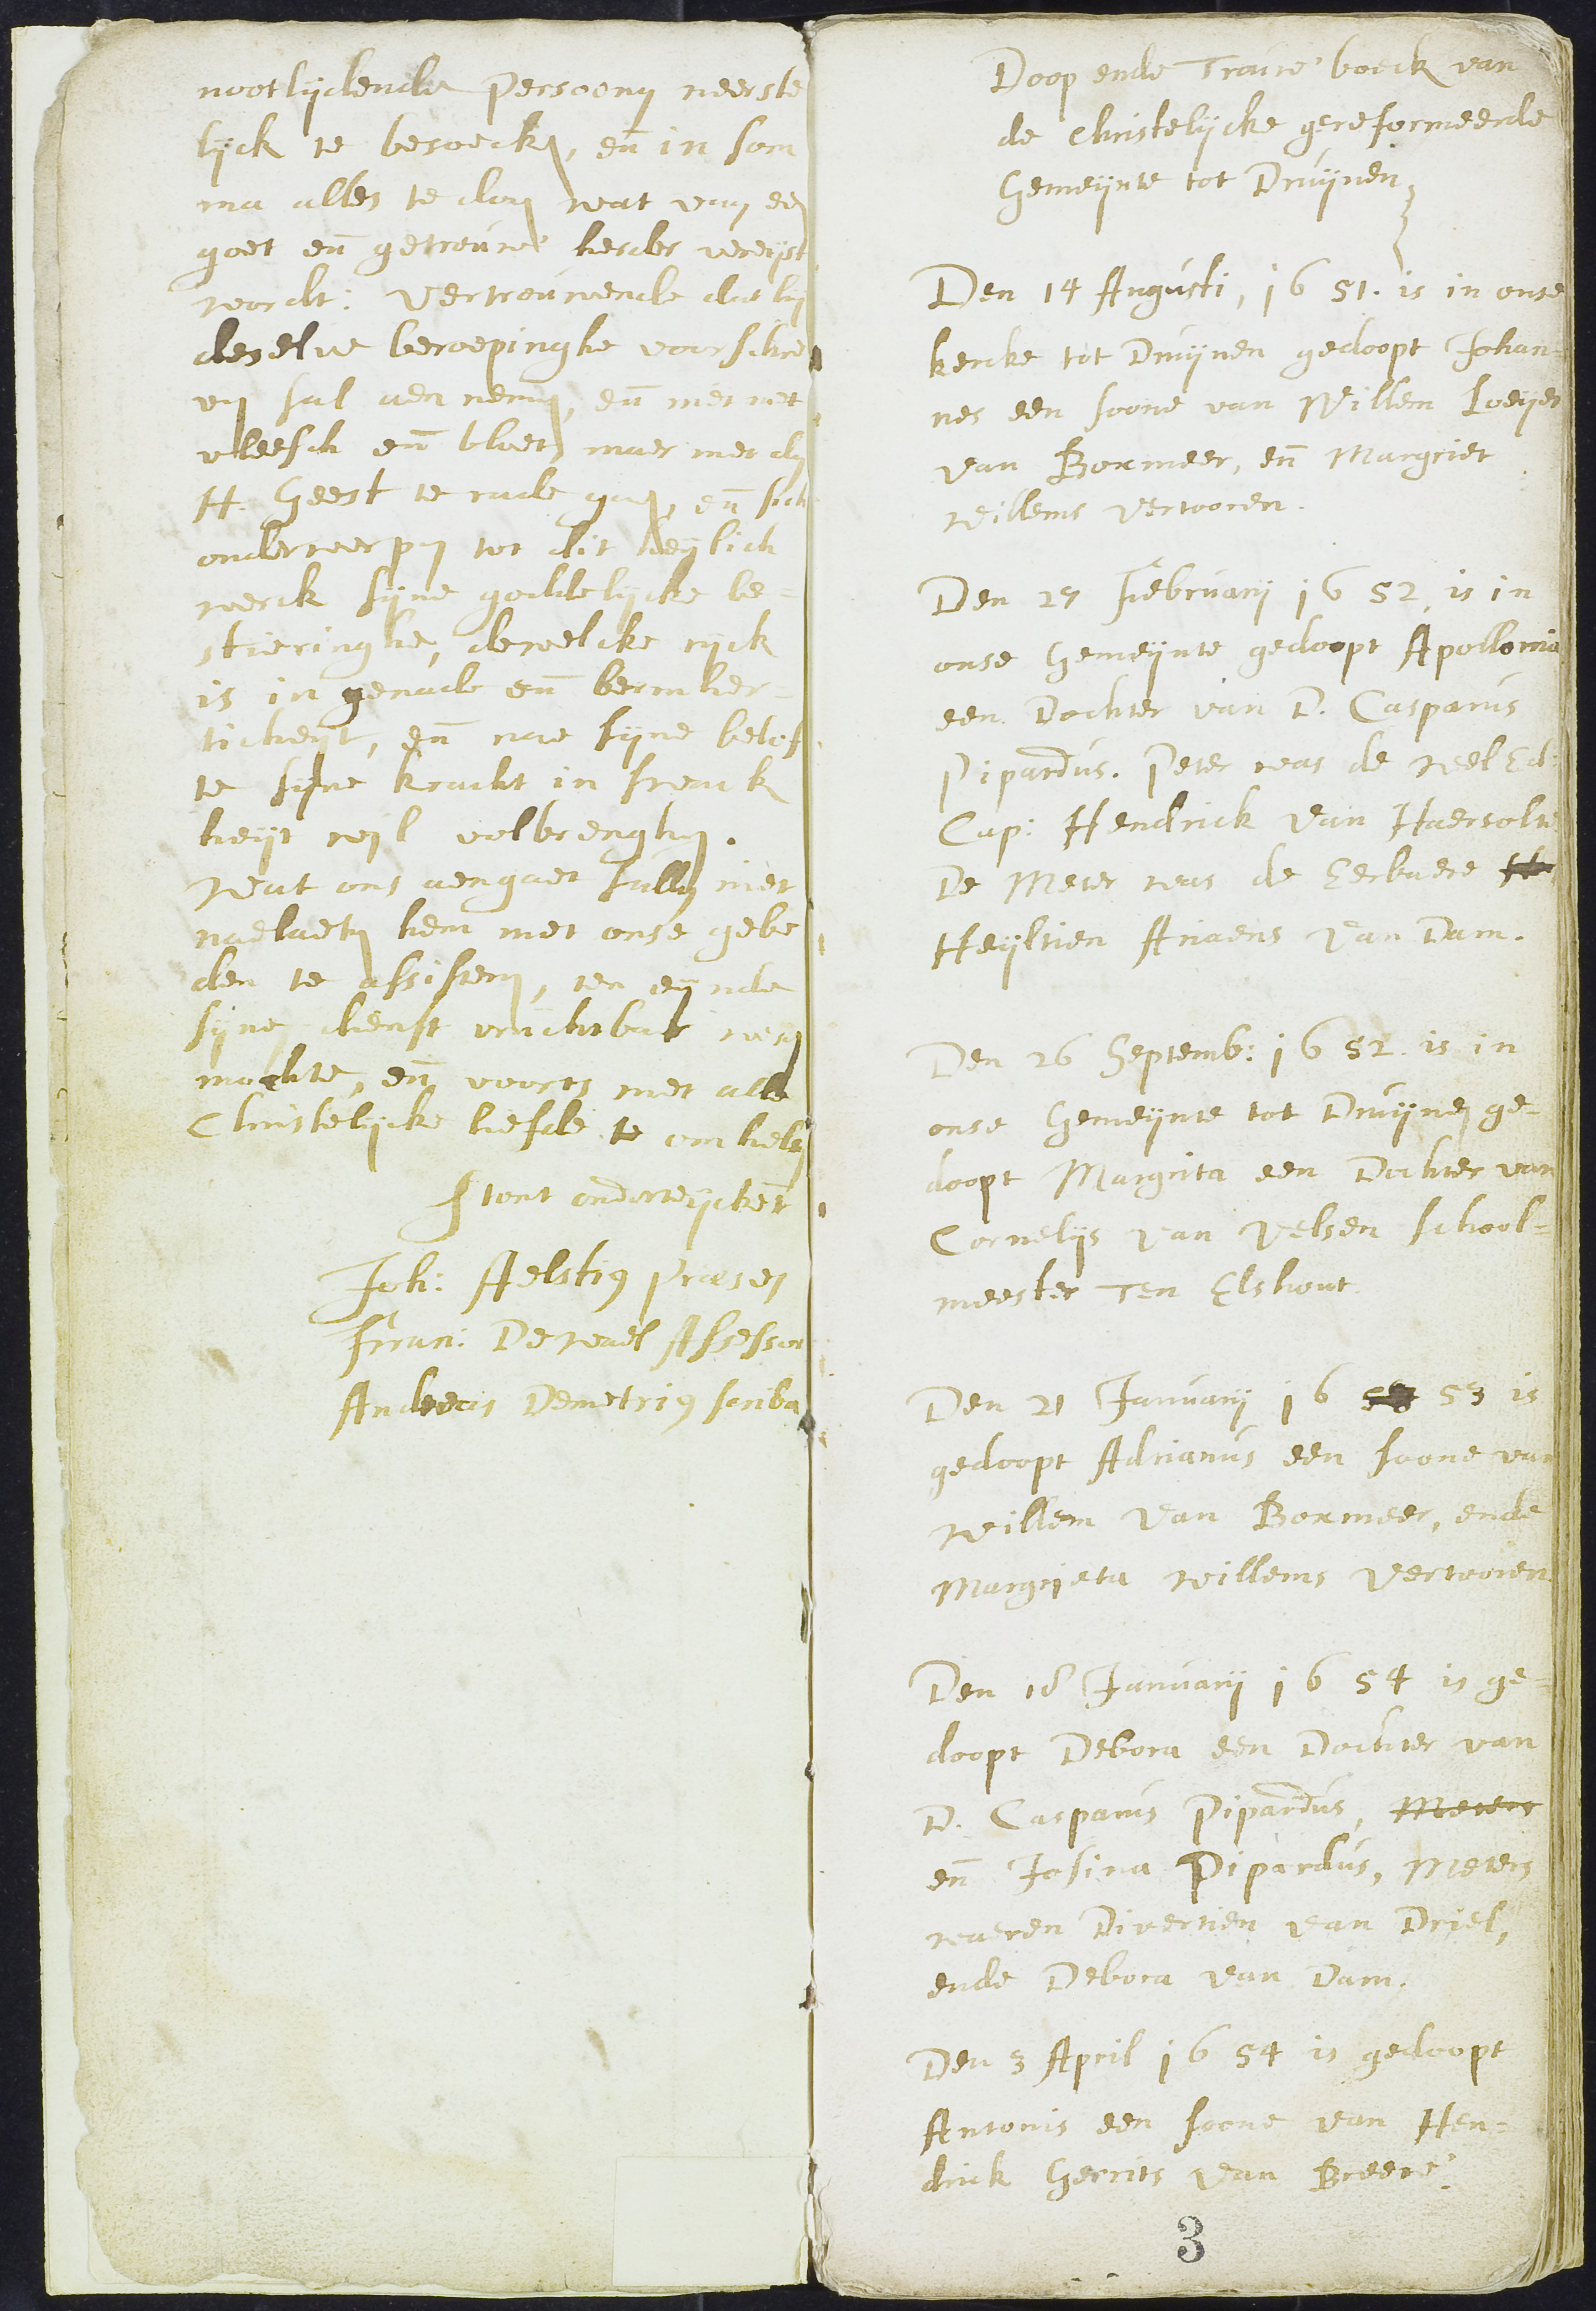 nootlijdende Persoonen neerste
lijck te besoecken, en̄ in som
ma alles te doen wat van een
goet en̄ getrouwe herder vereijst
wordt: Vertrouwende dat hij
deselve beroepinghe voorschre
ven sal aennemen, en̄ niet met
vleesch en̄ bloet, maer met den
H. Geest te rade gaen, en̄ sich
onderwerpen tot dit heijlich
werck sijne goddelijcke be-
stieringhe, dewelcke rijck
is in genade en̄ bermher-
ticheijt, en̄ nae sijne belof
te sijne kracht in swack
heijt wil volbrenghen.
Wat ons aengaet sullen niet
naelaeten hem met onse gebe
den te assisteren, ten eijnde
sijnen dienst vruchtbaer wesen
mochte, en̄ voorts met alle
Christelijcke liefde te omhelsen
Stont onderteijckent
Joh: Aelstius Praeses
Fran: De Wael Assessor
Andreas Demetrius scriba
Doop ende Trouw boeck van
de Christelijcke gereformeerde
Gemeijnte tot Druijnen
Den 14 Augusti, 1651. is in onse
kercke tot Druijnen gedoopt Johan-
nes een soone van Willem Loeijen
van Boxmeer, en̄ Margriet
Willems Vertooren.
Den 27 Februarij 1652, is in
onse Gemeijnte gedoopt Apollonia
een Dochter van D. Casparus
Pipardus. Peter was de Wel Ed:
Cap: Hendrick van Haersolte
De Meter was de Eerbaere
Heijltien Ariaens van Dam.
Den 26 Septemb: 1652. is in
onse Gemeijnte tot Druijnen ge-
doopt Margrita een Dochter van
Cornelijs van Velsen school-
meester Ten Elshout.
Den 21 Januarij 16 53 is
gedoopt Adrianus een soone van
Willem van Boxmeer, ende
Margrieta Willems Vertooren
Den 18 Januarij 1654 is ge-
doopt Debora een Dochter van
D. Casparus Pipardus, Meters
en̄ Josina Pipardus, Meters
waeren Divertien van Driel,
ende Debora van Dam.
Den 3 April 1654 is gedoopt
Antonis een soone van Hen-
drick Gerrits van Breere.
3